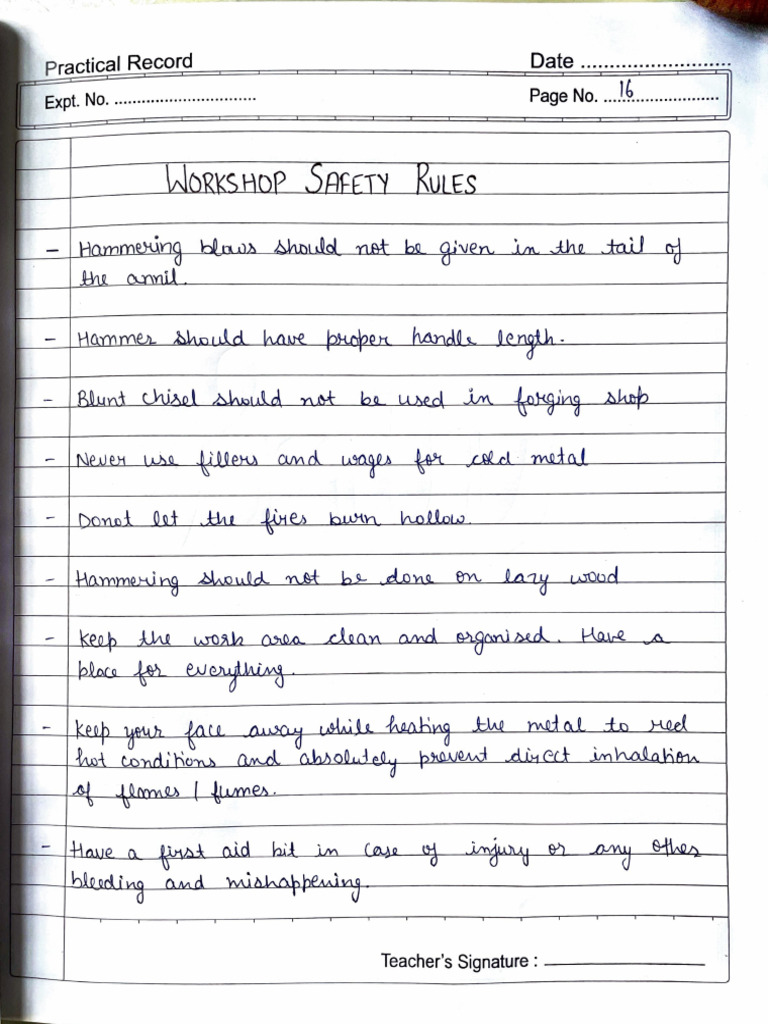 Practical Record
Date ..........................
Expt. No. ..............................
Page No. ...16......................
WORKSHOP SAFETY RULES
- Hammering blows should not be given in the tail of
the anvil.
- Hammer should have proper handle length.
- Blunt chisel should not be used in forging shop
- Never use fillers and wages for cold metal
- Donot let the fires burn hollow.
- Hammering should not be done on lazy wood
- Keep the work area clean and organised. Have a
place for everything.
- Keep your face away while heating the metal to red
hot conditions and absolutely prevent direct inhalation
of flames / fumes.
- Have a first aid kit in case of injury or any other
bleeding and mishappening.
Teacher's Signature : ____________________